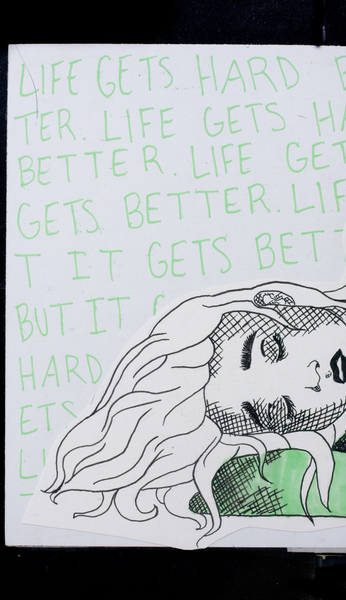 LIFE GETS HARD B
TER. LIFE GETS HA
BETTER. LIFE GET
GETS BETTER. LIF
T IT GETS BETT
BUT IT G
HARD
ETS
LI